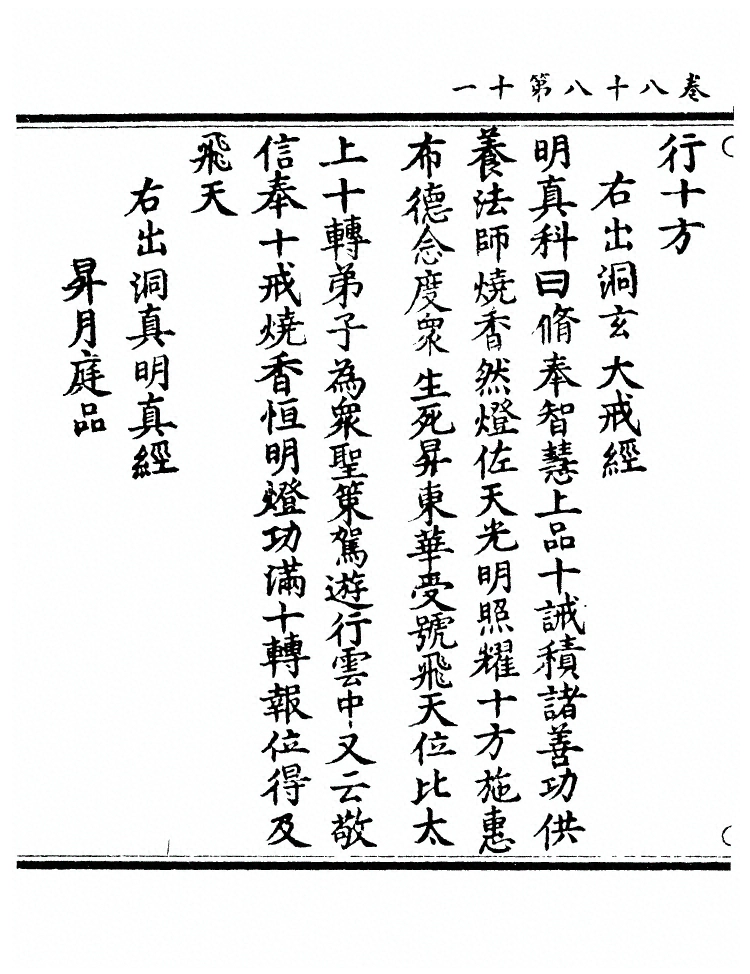 卷八十八第十一
行十方
右出洞玄大戒經
明真科曰脩奉智慧上品十誡積諸善功供
養法師燒香然燈佐天光明照耀十方施惠
布德念度衆生死昇東華受號飛天位比太
上十轉弟子為衆聖策駕遊行雲中又云敬
信奉十戒燒香恒明燈功滿十轉報位得及
飛天
右出洞真明真經
昇月庭品